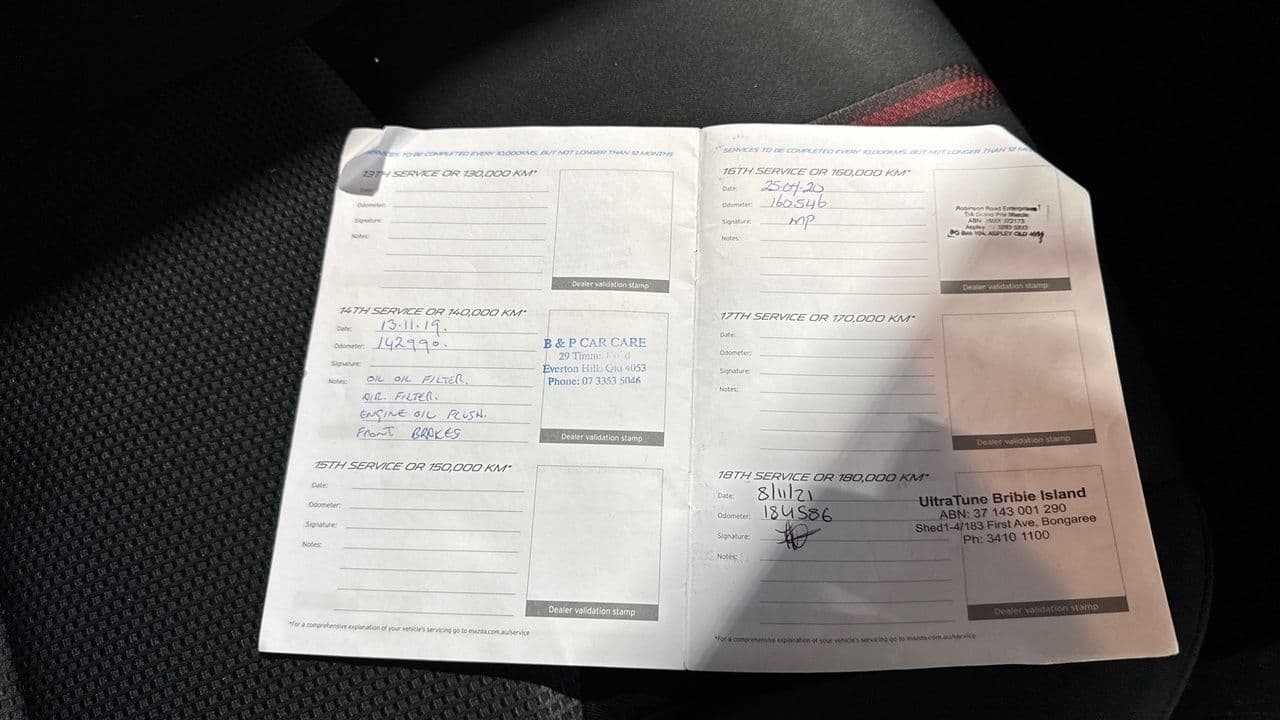 SERVICES TO BE COMPLETED EVERY 10,000KMS, BUT NOT LONGER THAN 12 MONTHS
13TH SERVICE OR 130,000 KM*
Date:
Odometer:
Signature:
Notes:
Dealer validation stamp
14TH SERVICE OR 140,000 KM*
Date: 13.11.19.
Odometer: 142990.
Signature:
Notes: OIL OIL FILTER.
AIR. FILTER.
ENGINE OIL FLUSH.
FRONT BRAKES
B & P CAR CARE
29
Everton Hill Qld 4053
Phone: 07 3353 5046
Dealer validation stamp
15TH SERVICE OR 150,000 KM*
Date:
Odometer:
Signature:
Notes:
Dealer validation stamp
*For a comprehensive explanation of your vehicle's servicing go to mazda.com.au/service
SERVICES TO BE COMPLETED EVERY 10,000KMS, BUT NOT LONGER THAN 12
16TH SERVICE OR 160,000 KM*
Date: 25.04.20
Odometer: 160546
Signature: MP
Notes:
Road Enterprises
T/A Grand Prix Mazda
ABN
Aspley
PO Box 104, ASPLEY QLD
Dealer validation stamp
17TH SERVICE OR 170,000 KM*
Date:
Odometer:
Signature:
Notes:
Dealer validation stamp
18TH SERVICE OR 180,000 KM*
Date: 8/11/21
Odometer: 184586
Signature:
Notes:
UltraTune Bribie Island
ABN: 37 143 001 290
Shed1-4/183 First Ave, Bongaree
Ph: 3410 1100
Dealer validation stamp
*For a comprehensive explanation of your vehicle's servicing go to mazda.com.au/service